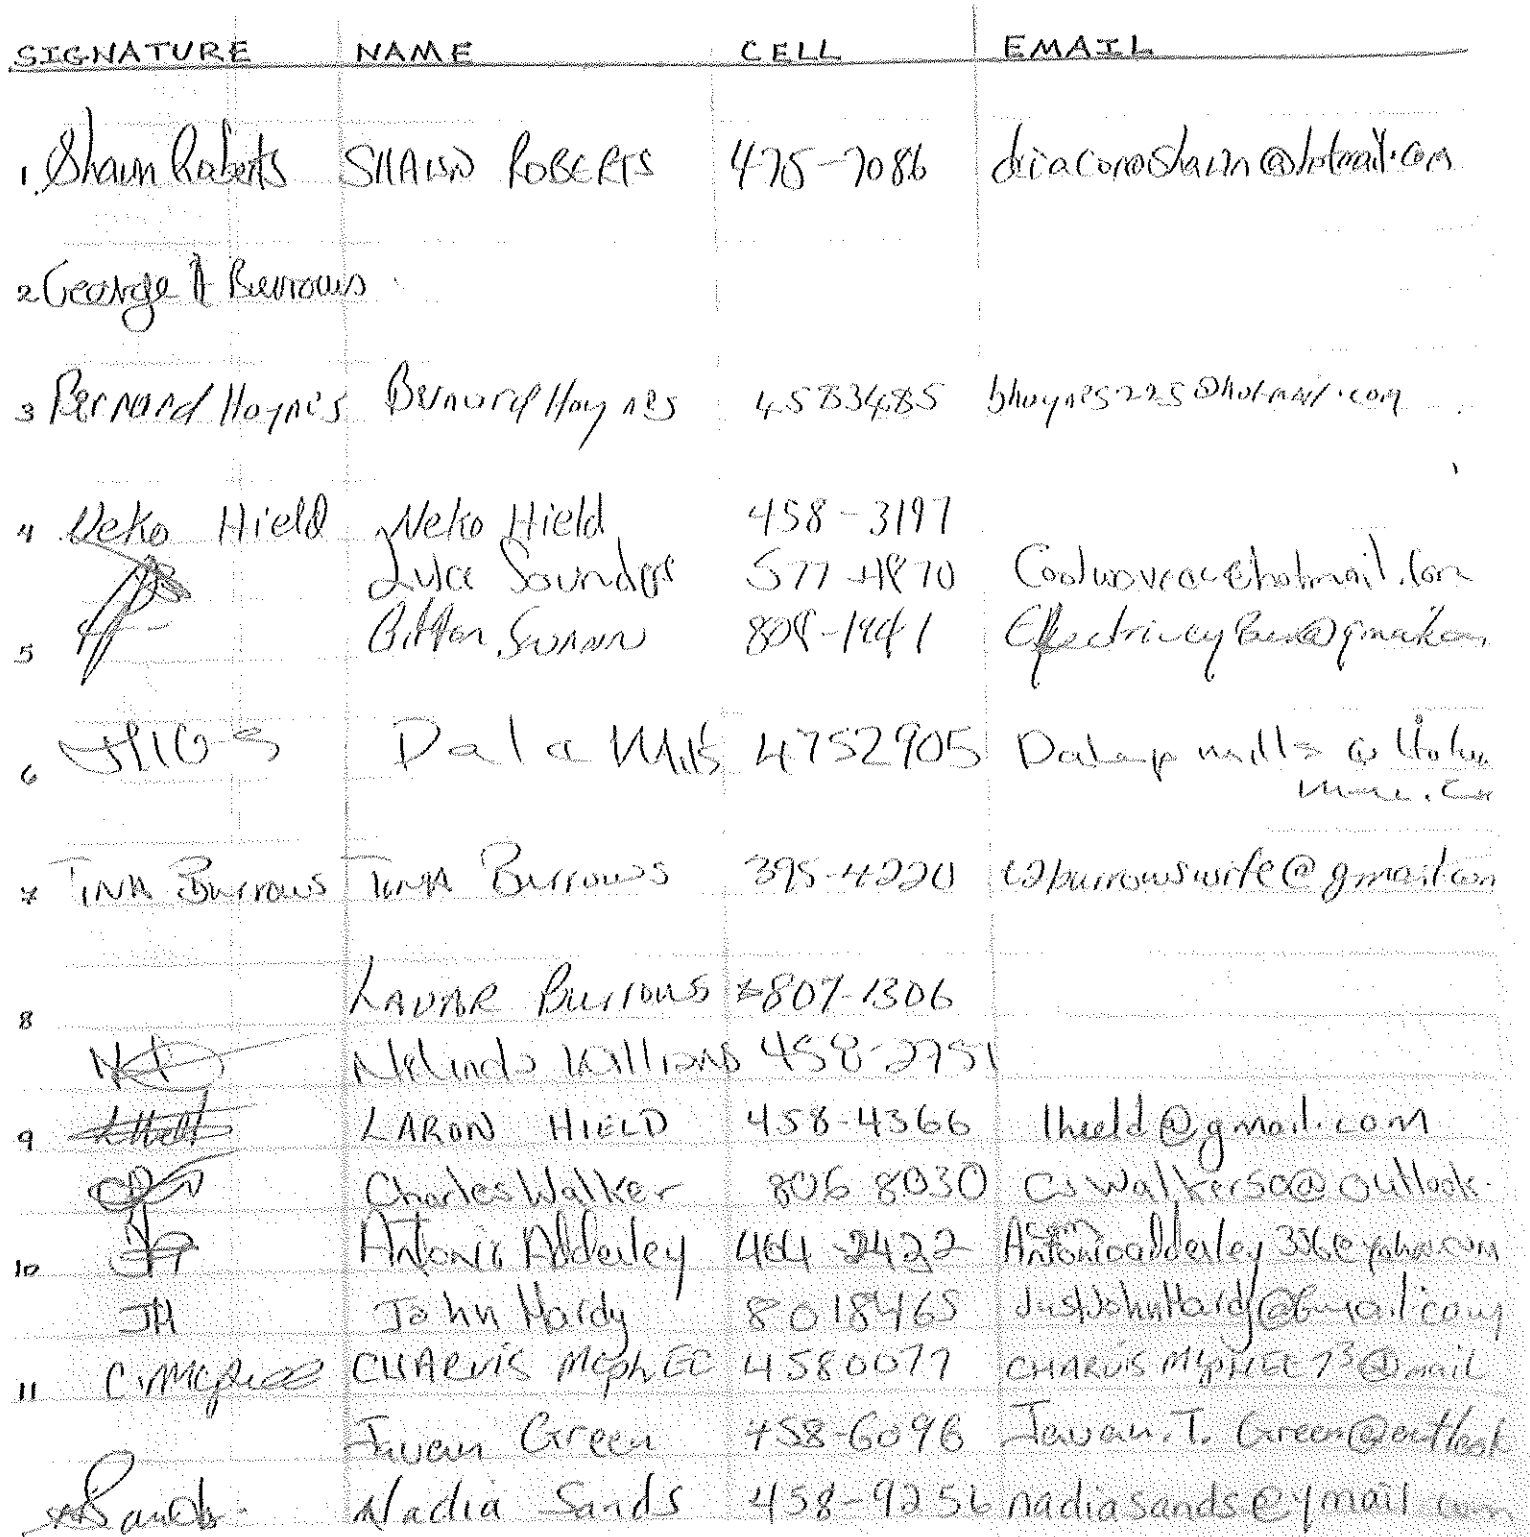 SIGNATURE NAME CELL EMAIL
1. Shawn Roberts SHAWN ROBERTS 475-7086 diaconoshawn@hotmail.com
2 George A Burrows
3 Bernard Haynes Bernard Haynes 4583485 bhaynes225@hotmail.com
4 Neko Hield Neko Hield 458-3197
Luke Saunders 577-4870
5 Swann 808-1441
6 Dale Mills 4752905
7 TINA Burrows TINA Burrows 395-4220 burrowswife@gmail.com
8 LAVAR Burrows 807-1306
Melinda Williams 458-2751
9 LHield LARON HIELD 458-4366 lhield@gmail.com
Charles Walker 806 8030 cswalker50@outlook.
com
10 Antonio Adderley 464-2422 Antonioadderley336@yahoo.com
JH John Hardy 8018465 JustJohnHardy@Gmail.com
11 C. McPhee CHARVIS McPhEE 4580077 CHARVISMcPHEE73@mail
Javan Green 458-6096 Javan.T.Green@outlook
Sands Nadia Sands 458-9256 nadiasands@ymail com